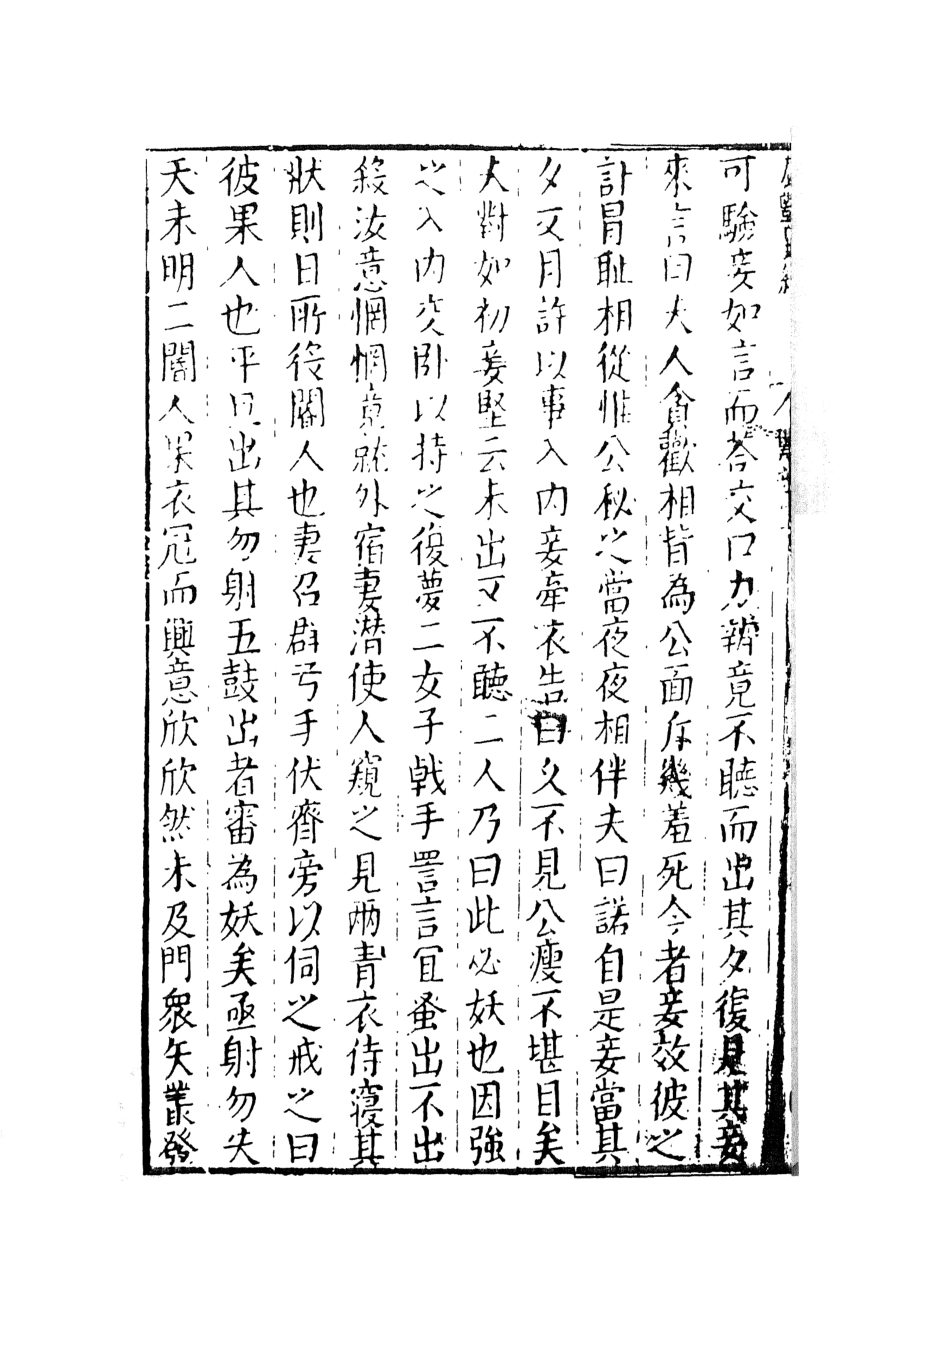 可驗妾如言而荅交口力辨竟不聽而出其夕復見其妾
來言曰夫人貪歡相皆為公面斥幾羞死今者妾效彼之
計冒恥相從惟公秘之當夜夜相伴夫曰諾自是妾當其
夕又月許以事入内妾牽衣告曰久不見公瘦不堪目矣
夫對如初妾堅云未出又不聽二人乃曰此必妖也因強
之入内交卧以持之復夢二女子戟手詈言宜蚤出不出
殺汝意惘惘竟就外宿妻潛使人窺之見兩青衣侍寢其
狀則日所役閽人也妻召群弓手伏齊旁以伺之戒之曰
彼果人也平旦出其勿射五鼓出者審為妖矣亟射勿失
天未明二閽人果衣冠而興意欣欣然未及門衆矢叢發